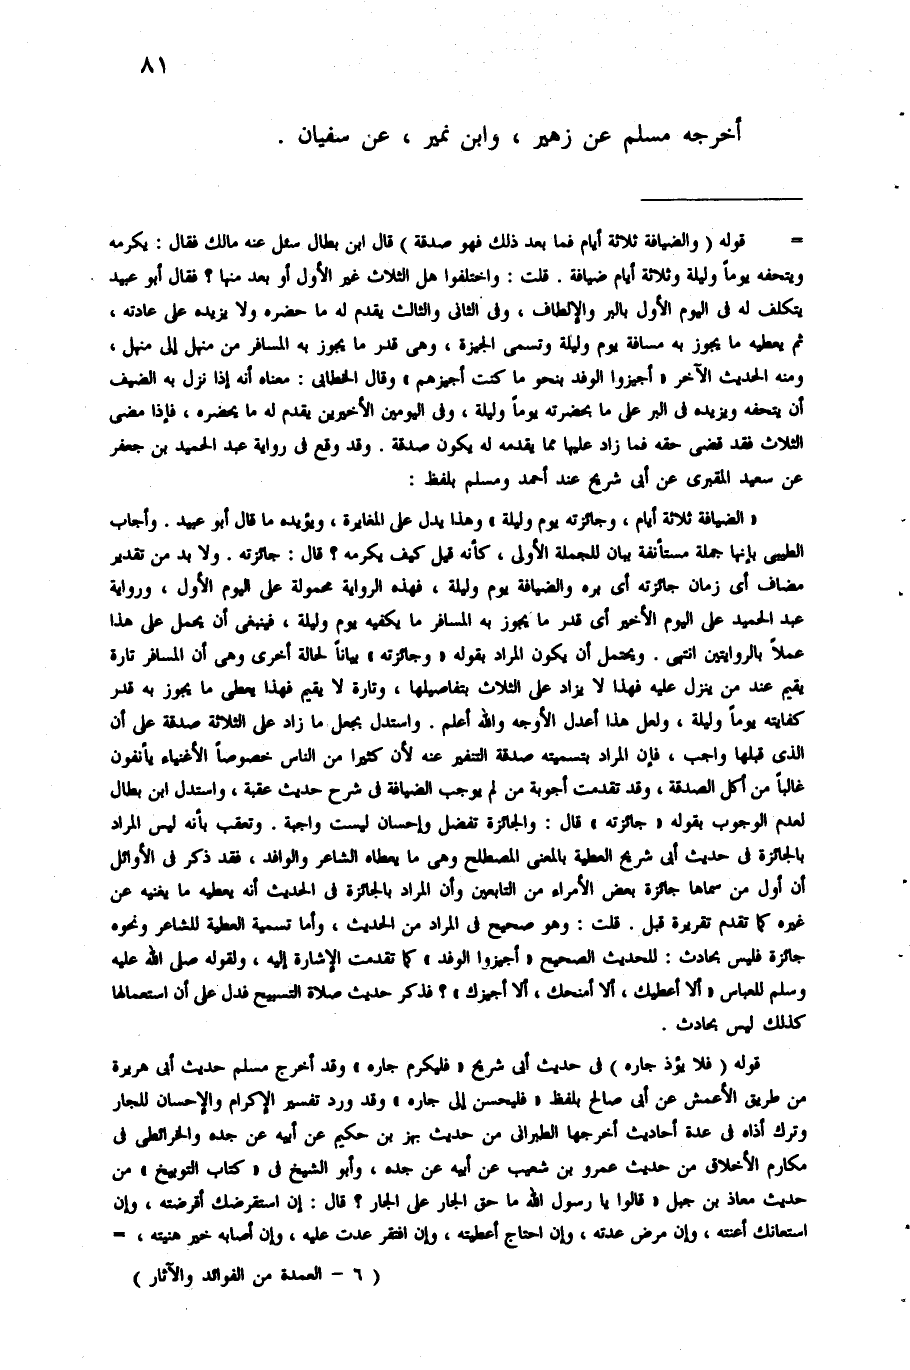 ٨١
أخرجه مسلم عن زهير ، وابن نمير ، عن سفيان .
= قوله ( والضيافة ثلاثة أيام فما بعد ذلك فهو صدقة ) قال ابن بطال سئل عنه مالك فقال : يكرمه
ويتحفه يوماً وليلة وثلاثة أيام ضيافة . قلت : واختلفوا هل الثلاث غير الأول أو بعد منها ؟ فقال أبو عبيد
يتكلف له فى اليوم الأول بالبر والإلطاف ، وفى الثانى والثالث يقدم له ما حضره ولا يزيده على عادته ،
ثم يعطيه ما يجوز به مسافة يوم وليلة وتسمى الجيزة ، وهى قدر ما يجوز به المسافر من منهل إلى منهل ،
ومنه الحديث الآخر « أجيزوا الوفد بنحو ما كنت أجيزهم » وقال الخطابى : معناه أنه إذا نزل به الضيف
أن يتحفه ويزيده فى البر على ما بحضرته يوماً وليلة ، وفى اليومين الأخيرين يقدم له ما يحضره ، فإذا مضى
الثلاث فقد قضى حقه فما زاد عليها مما يقدمه له يكون صدقة . وقد وقع فى رواية عبد الحميد بن جعفر
عن سعيد المقبرى عن أبى شريح عند أحمد ومسلم بلفظ :
« الضيافة ثلاثة أيام ، وجائزته يوم وليلة » وهذا يدل على المغايرة ، ويؤيده ما قال أبو عبيد . وأجاب
الطيبى بإنها جملة مستأنفة بيان للجملة الأولى ، كأنه قيل كيف يكرمه ؟ قال : جائزته . ولا بد من تقدير
مضاف أى زمان جائزته أى بره والضيافة يوم وليلة ، فهذه الرواية محمولة على اليوم الأول ، ورواية
عبد الحميد على اليوم الأخير أى قدر ما يجوز به المسافر ما يكفيه يوم وليلة ، فينبغى أن يحمل على هذا
عملاً بالروايتين انتهى . ويحتمل أن يكون المراد بقوله « وجائزته » بياناً لحالة أخرى وهى أن المسافر تارة
يقيم عند من ينزل عليه فهذا لا يزاد على الثلاث بتفاصيلها ، وتارة لا يقيم فهذا يعطى ما يجوز به قدر
كفايته يوماً وليلة ، ولعل هذا أعدل الأوجه والله أعلم . واستدل بجعل ما زاد على الثلاثة صدقة على أن
الذى قبلها واجب ، فإن المراد بتسميته صدقة التنفير عنه لأن كثيرا من الناس خصوصاً الأغنياء يأنفون
غالباً من أكل الصدقة ، وقد تقدمت أجوبة من لم يوجب الضيافة فى شرح حديث عقبة ، واستدل ابن بطال
لعدم الوجوب بقوله « جائزته » قال : والجائزة تفضل وإحسان ليست واجبة . وتعقب بأنه ليس المراد
بالجائزة فى حديث أبى شريح العطية بالمعنى المصطلح وهى ما يعطاه الشاعر والوافد ، فقد ذكر فى الأوائل
أن أول من سماها جائزة بعض الأمراء من التابعين وأن المراد بالجائزة فى الحديث أنه يعطيه ما يغنيه عن
غيره كما تقدم تقريرة قبل . قلت : وهو صحيح فى المراد من الحديث ، وأما تسمية العطية للشاعر ونحوه
جائزة فليس بحادث : للحديث الصحيح « أجيزوا الوفد » كما تقدمت الإشارة إليه ، ولقوله صلى الله عليه
وسلم للعباس « ألا أعطيك ، ألا أمنحك ، ألا أجيزك » ؟ فذكر حديث صلاة التسبيح فدل على أن استعمالها
كذلك ليس بحادث .
قوله ( فلا يؤذ جاره ) فى حديث أبى شريح « فليكرم جاره » وقد أخرج مسلم حديث أبى هريرة
من طريق الأعمش عن أبى صالح بلفظ « فليحسن إلى جاره » وقد ورد تفسير الإكرام والإحسان للجار
وترك أذاه فى عدة أحاديث أخرجها الطبرانى من حديث بهز بن حكيم عن أبيه عن جده والخرائطى فى
مكارم الأخلاق من حديث عمرو بن شعيب عن أبيه عن جده ، وأبو الشيخ فى « كتاب التوبيخ » من
حديث معاذ بن جبل « قالوا يا رسول الله ما حق الجار على الجار ؟ قال : إن استقرضك أقرضته ، وإن
استعانك أعنته ، وإن مرض عدته ، وإن احتاج أعطيته ، وإن افتقر عدت عليه ، وإن أصابه خير هنيته ، =
( ٦ – العمدة من الفوائد والآثار )